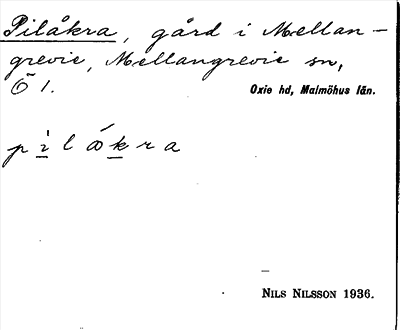 Pilåkra, gård i Mellan-
grevie, Mellangrevie sn,
Ö 1.
Oxie hd, Malmöhus län.
pilåkra
NILS NILSSON 1936.